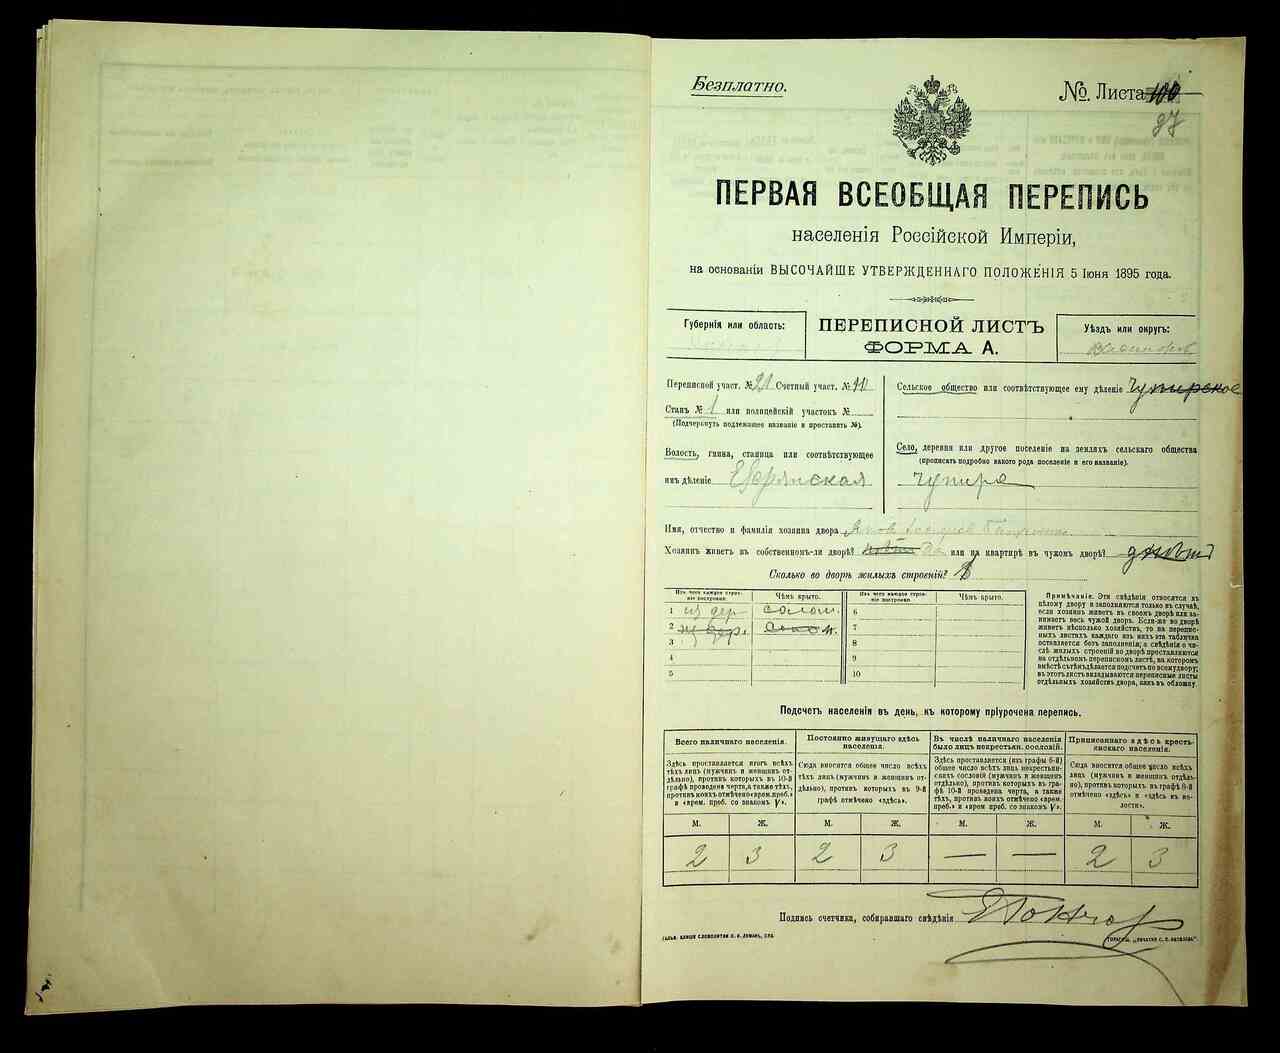 Безплатно.
№ Листа 100
97
ПЕРВАЯ ВСЕОБЩАЯ ПЕРЕПИСЬ
населенія Россійской Имперіи,
на основаніи ВЫСОЧАЙШЕ УТВЕРЖДЕННАГО ПОЛОЖЕНІЯ 5 Іюня 1895 года.
Губернія или область:
ПЕРЕПИСНОЙ ЛИСТЪ
ФОРМА А.
Уѣздъ или округъ:
Переписной участ. № 21 Счетный участ. №
Станъ № 1 или полицейскій участокъ №
(Подчеркнуть подлежащее названіе и проставить №).
Волость, гмина, станица или соотвѣтствующее
имъ дѣленіе
Сельское общество или соотвѣтствующее ему дѣленіе Чупирское
Село, деревня или другое поселеніе на земляхъ сельскаго общества
(прописать подробно какого рода поселеніе и его названіе).
Чупира
Имя, отчество и фамилія хозяина двора
Хозяинъ живетъ въ собственномъ-ли дворѣ? Да или на квартирѣ въ чужомъ дворѣ?
Сколько во дворѣ жилыхъ строеній?
Изъ чего каждое строеніе построено.
Чѣмъ крыто.
Изъ чего каждое строеніе построено.
Чѣмъ крыто.
1 из дер. солом. 6
2 из дер. солом. 7
3 8
4 9
5 10
Примѣчаніе. Эти свѣдѣнія относятся къ
цѣлому двору и заполняются только въ случаѣ,
если хозяинъ живетъ въ своемъ дворѣ или занимаетъ
весь чужой дворъ. Если-же во дворѣ
живетъ нѣсколько хозяйствъ, то на переписныхъ
листахъ каждаго изъ нихъ эта табличка
оставляется безъ заполненія; а свѣдѣнія о числѣ
жилыхъ строеній во дворѣ проставляются
на отдѣльномъ переписномъ листѣ, на которомъ
вмѣстѣ съ тѣмъ дѣлается подсчетъ по всему двору;
въ этотъ листъ вкладываются переписные листы
отдѣльныхъ хозяйствъ двора, какъ въ обложку.
Подсчетъ населенія въ день, къ которому пріурочена перепись.
Всего наличнаго населенія.
Здѣсь проставляется итогъ всѣхъ
тѣхъ лицъ (мужчинъ и женщинъ отдѣльно),
противъ которыхъ въ 10-й
графѣ проведена черта, а также тѣхъ,
противъ коихъ отмѣчено «врем. преб.»
и «врем. преб. со знакомъ V».
Постоянно живущаго здѣсь
населенія.
Сюда вносится общее число всѣхъ
тѣхъ лицъ (мужчинъ и женщинъ отдѣльно),
противъ которыхъ въ 9-й
графѣ отмѣчено «здѣсь».
Въ числѣ наличнаго населенія
было лицъ некрестьян. сословій.
Здѣсь проставляется (изъ графы 6-й)
общее число всѣхъ лицъ некрестьянскихъ
сословій (мужчинъ и женщинъ
отдѣльно), противъ которыхъ въ графѣ
10-й проведена черта, а также
тѣхъ, противъ коихъ отмѣчено «врем.
преб.» и «врем преб. со знакомъ V».
Приписаннаго здѣсь крестьянскаго
населенія.
Сюда вносится общее число всѣхъ
лицъ (мужчинъ и женщинъ отдѣльно),
противъ которыхъ въ графѣ 8-й
отмѣчено «здѣсь» и «здѣсь въ волости».
М. Ж. М. Ж. М. Ж. М. Ж.
2 3 2 3 — — 2 3
Подпись счетчика, собиравшаго свѣдѣнія